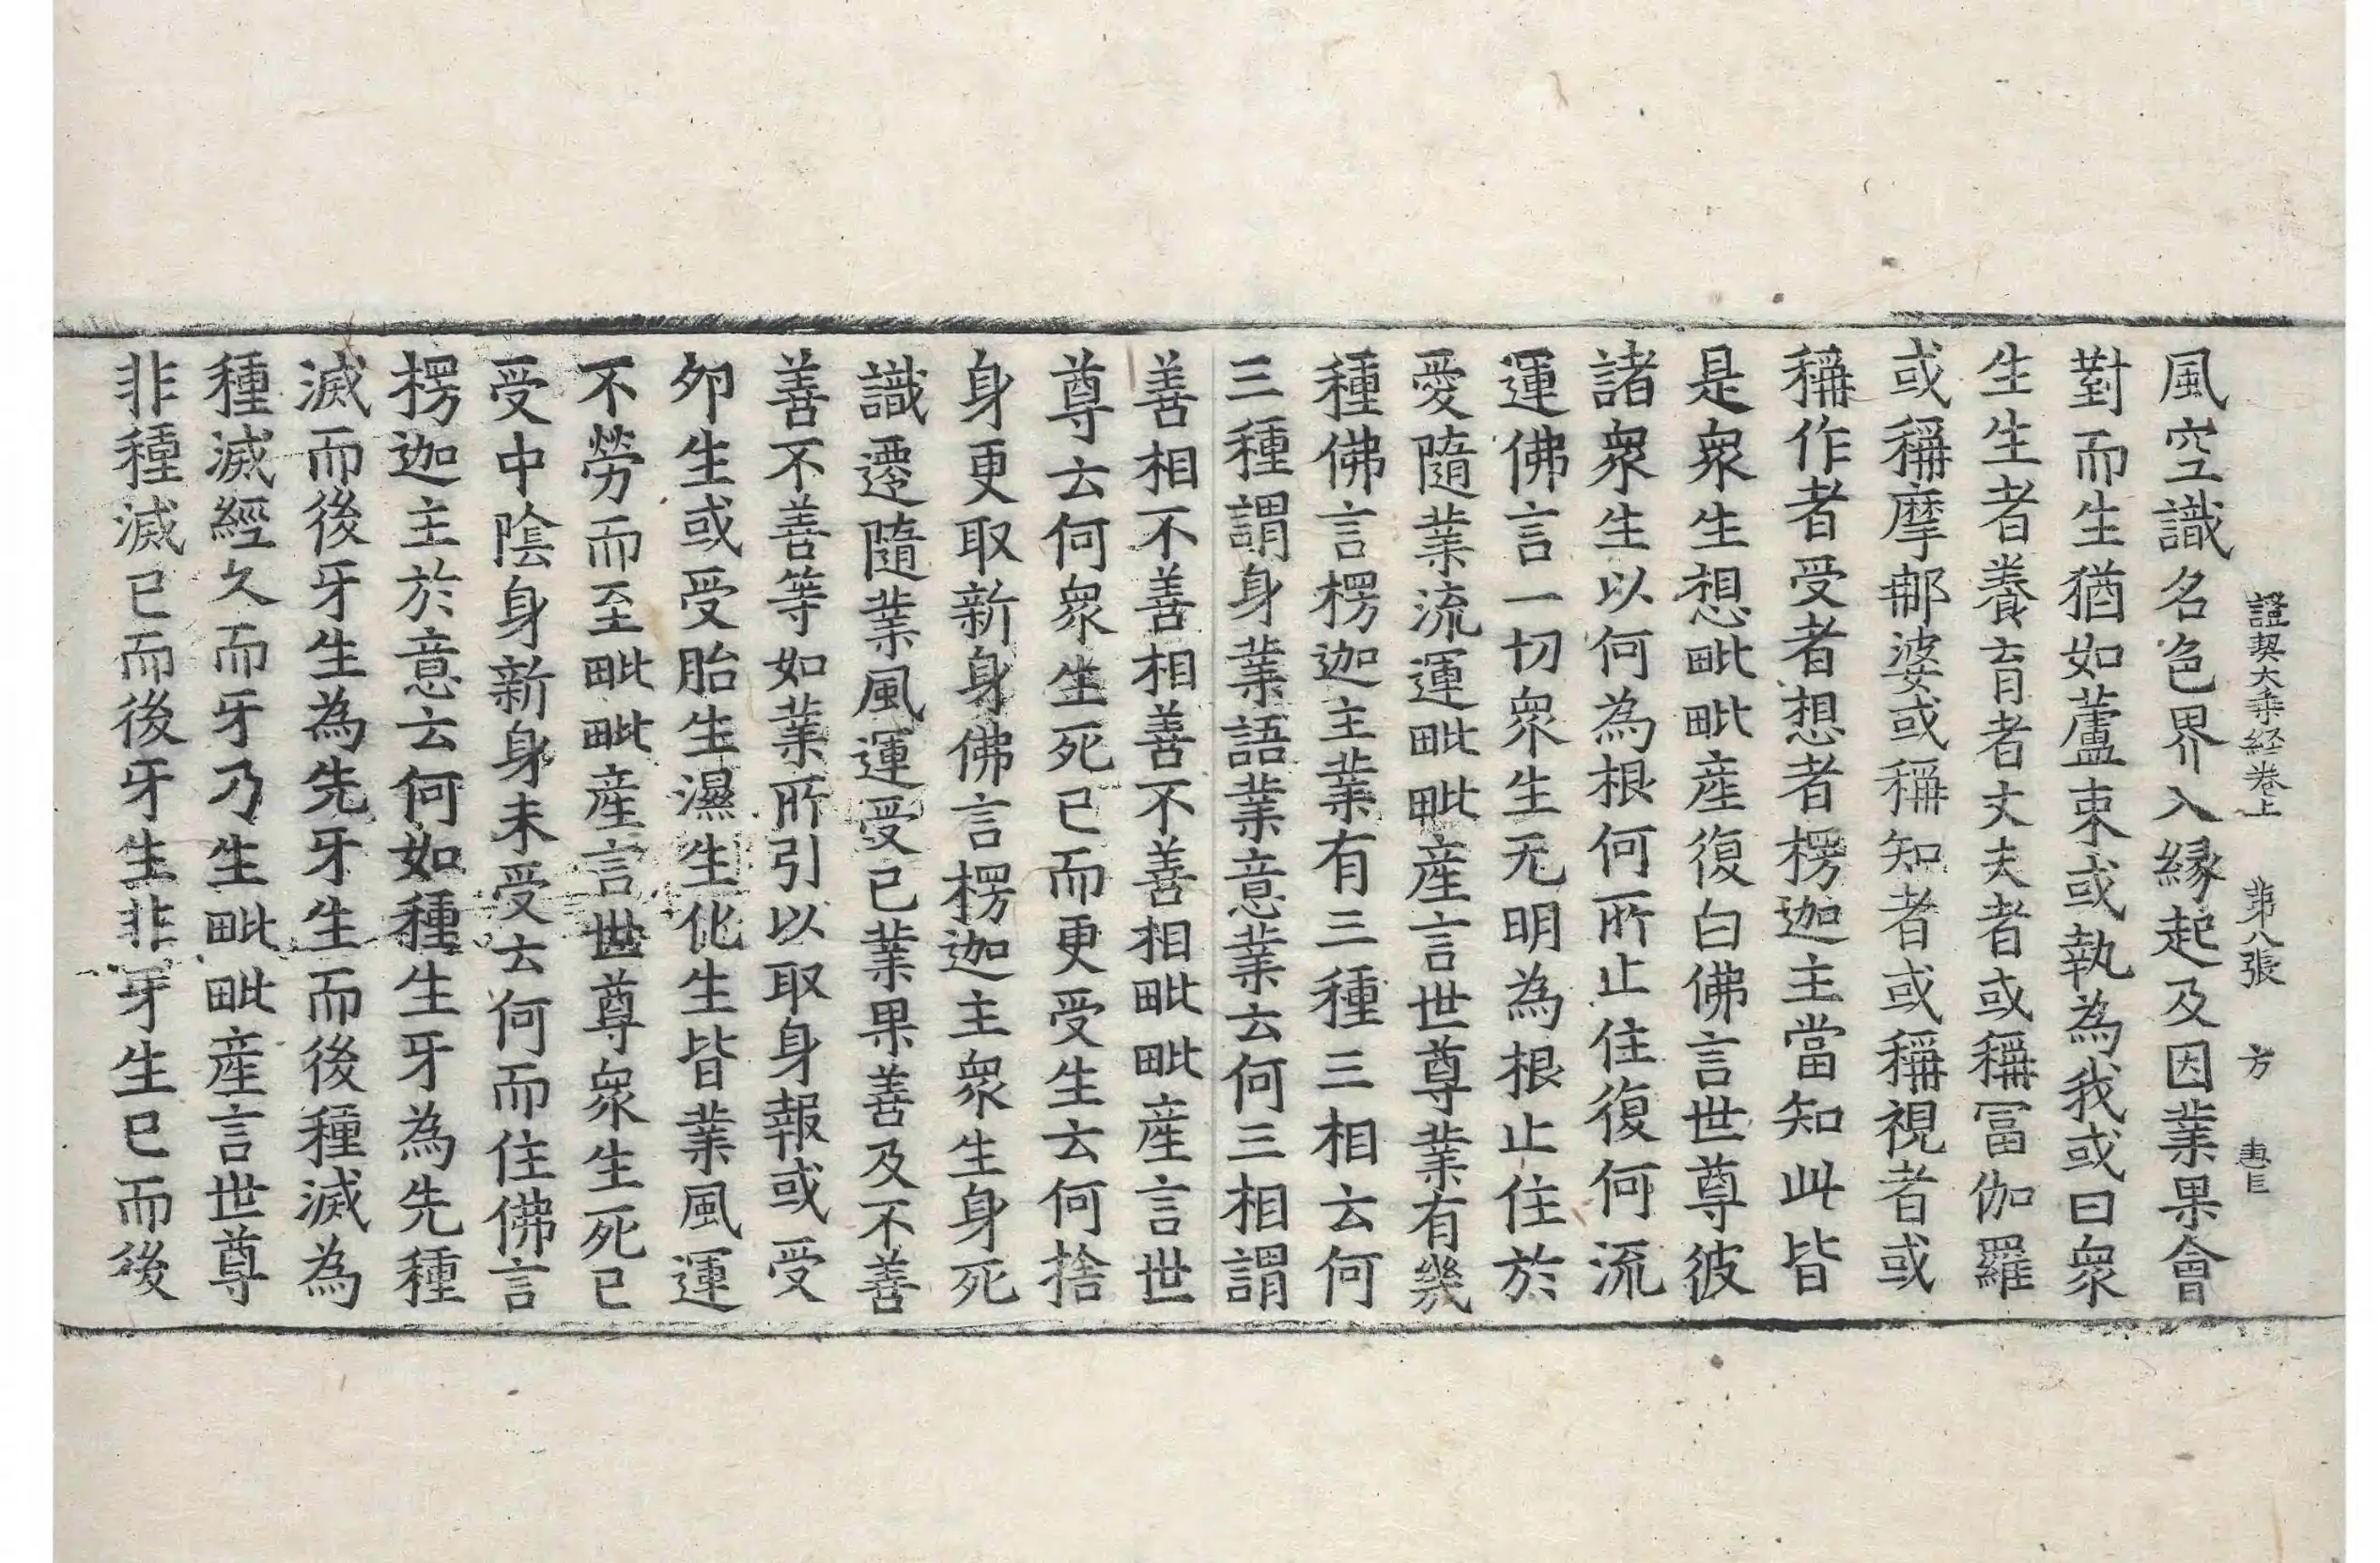 證契大乘経卷上 苐八張 方 惠巨
風空識名色界入縁起及因業果會
對而生猶如蘆束或執為我或曰衆
生生者養育者丈夫者或稱冨伽羅
或稱摩𨚗婆或稱知者或稱視者或
稱作者受者想者楞迦主當知此皆
是衆生想毗毗産復白佛言世尊彼
諸衆生以何為根何所止住復何流
運佛言一切衆生无明為根止住於
愛隨業流運毗毗産言世尊業有幾
種佛言楞迦主業有三種三相云何
三種謂身業語業意業云何三相謂
善相不善相善不善相毗毗産言世
尊云何衆生死已而更受生云何捨
身更取新身佛言楞迦主衆生身死
識遷隨業風運受已業果善及不善
善不善等如業所引以取身報或受
夘生或受胎生濕生化生皆業風運
不勞而至毗毗産言世尊衆生死已
受中陰身新身未受云何而住佛言
楞迦主於意云何如種生牙為先種
滅而後牙生為先牙生而後種滅為
種滅經久而牙乃生毗毗産言世尊
非種滅已而後牙生非牙生已而後